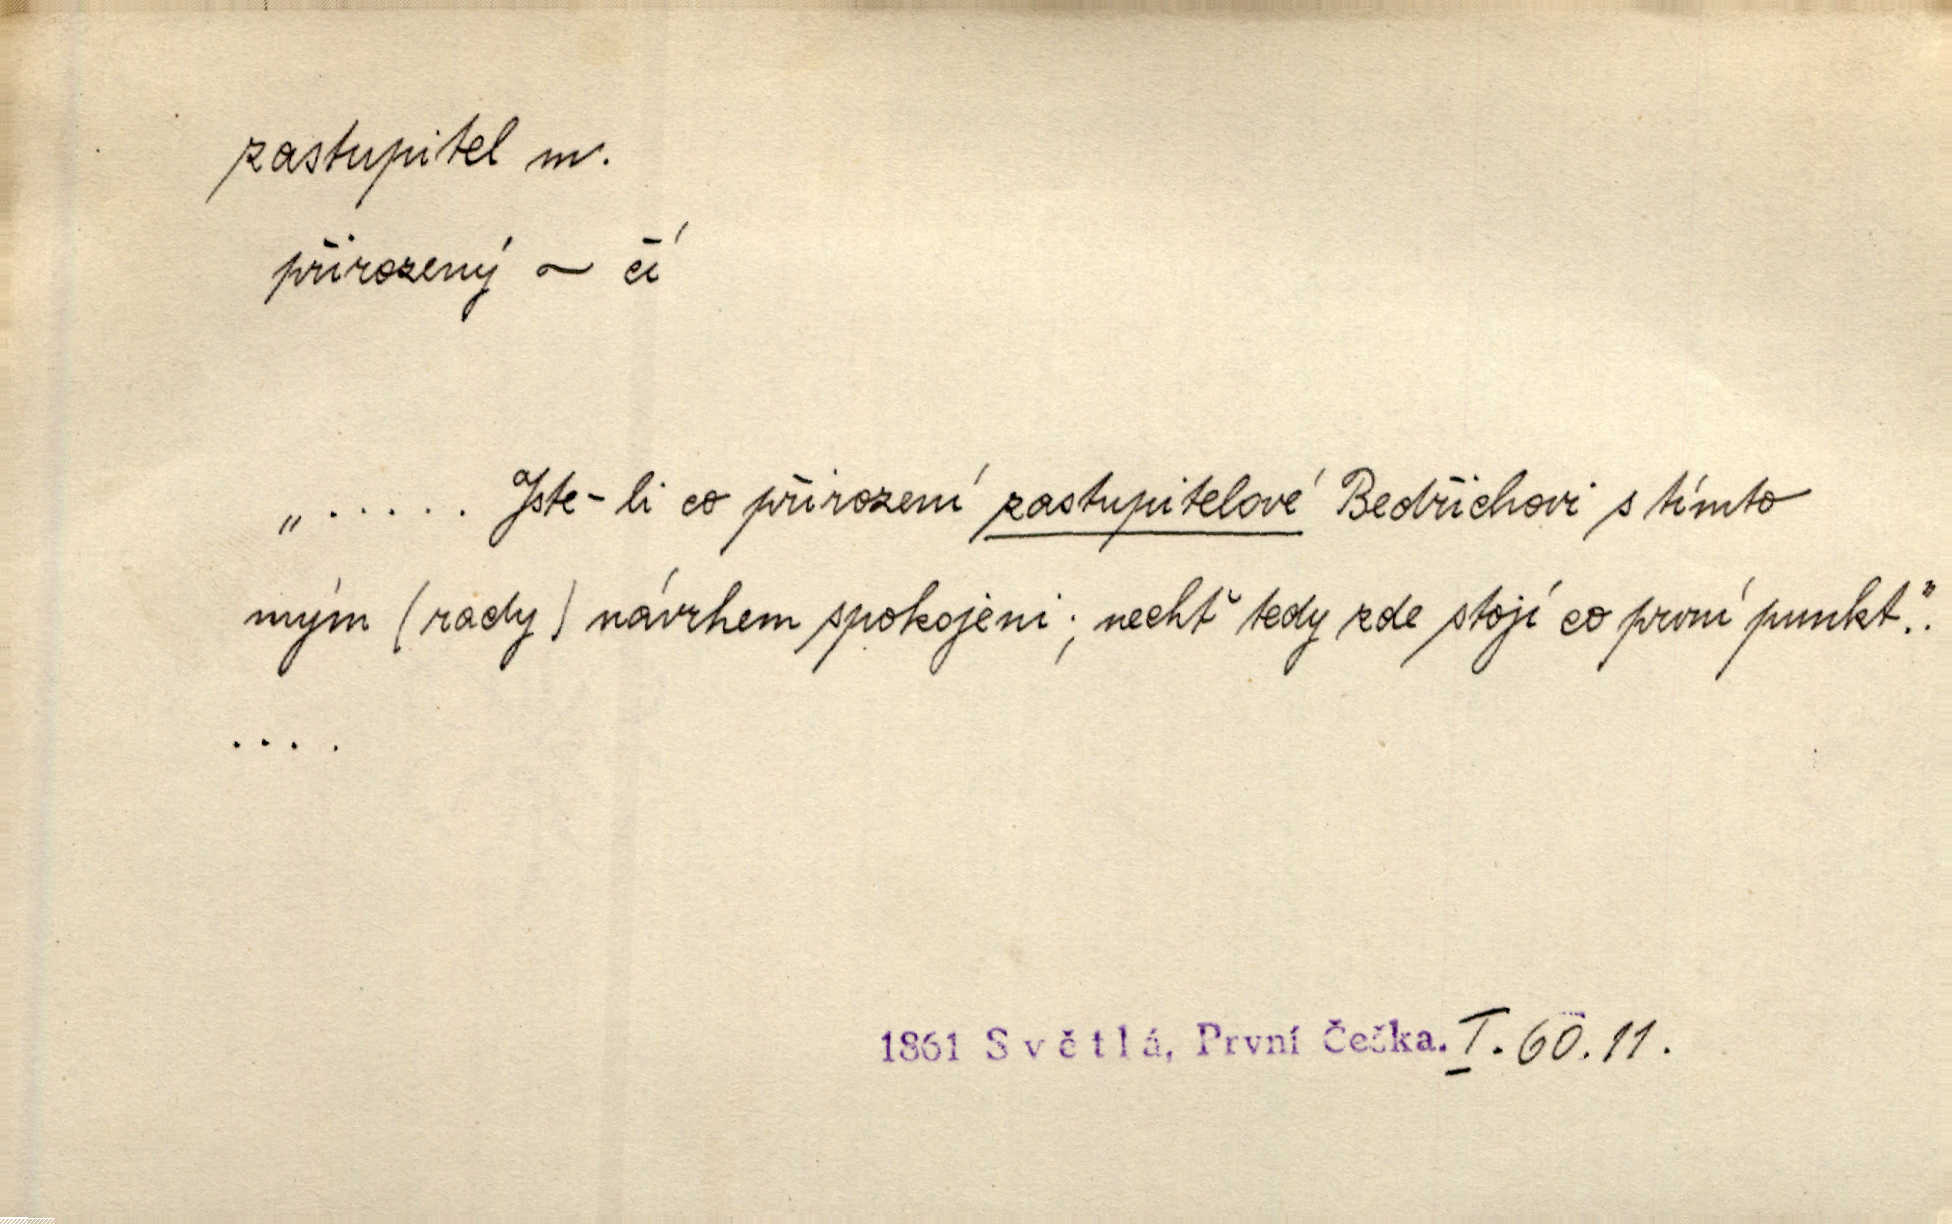 zastupitel m.
přirozený ~ čí
„ . . . . . Jste-li co přirození zastupitelové Bedřichovi s tímto
mým (rady) návrhem spokojeni; nechť tedy zde stojí co první punkt.“.
. . . .
1861 Světlá, První Češka. I. 60. 11.